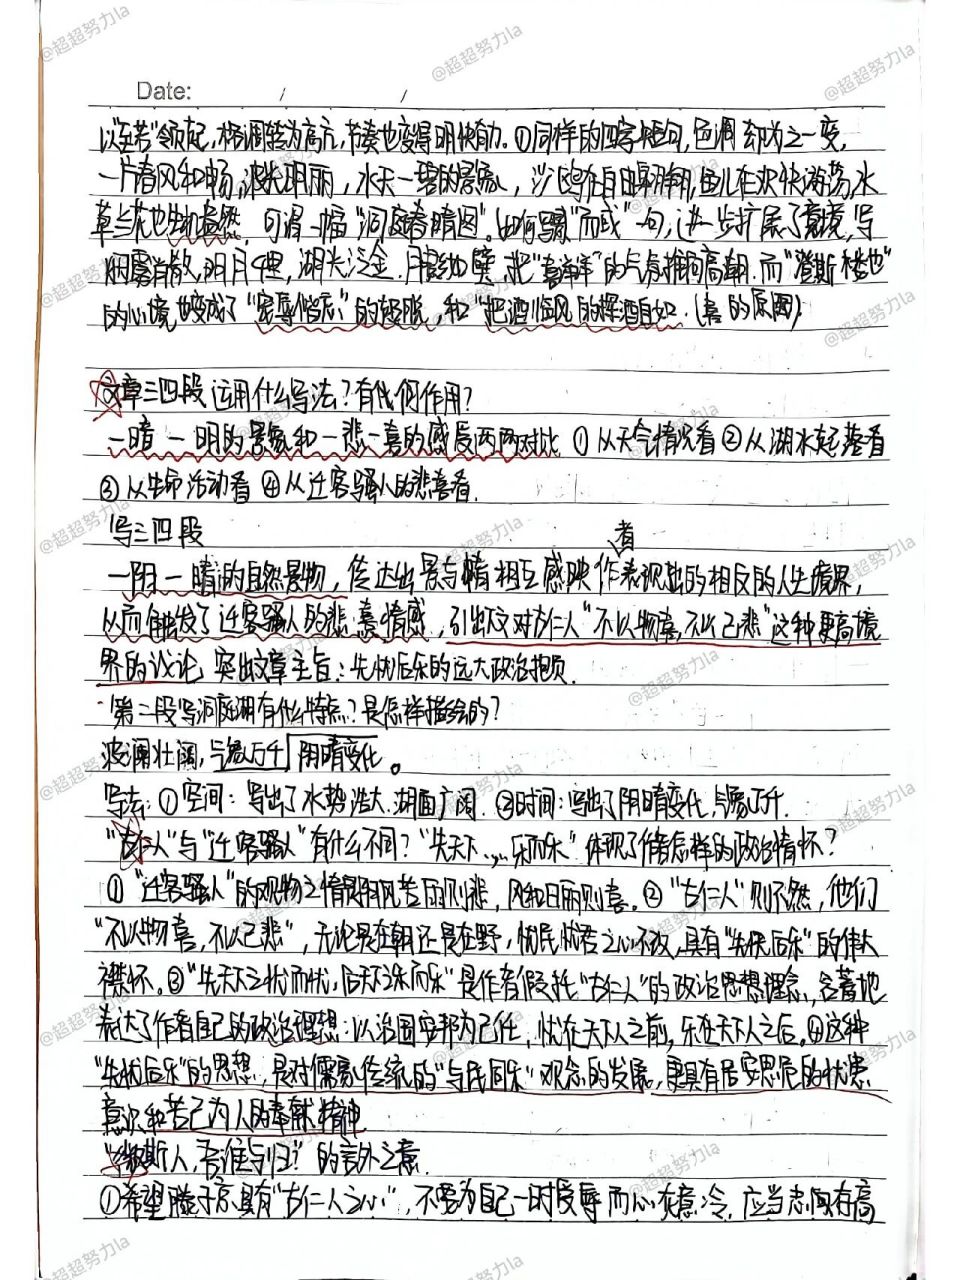 Date: / /
以"至若"领起,格调转为高亢,节奏也变得明快有力。①同样的四字短句,色调却为之一变,
一片春风和畅,波光明丽,水天一碧的景象,沙鸥在自由翱翔,鱼儿在欢快游荡,水
草兰花也生机盎然,可谓一幅"洞庭春晴图"。"而或"一句,进一步扩展了意境,写
烟雾消散,明月千里,湖光泛金,月影如璧,把"喜洋洋"的气氛推向高潮.而"登斯楼也"
的心境也变成了"宠辱偕忘"的超脱,和"把酒临风的挥洒自如.(喜的原因)
②文章三四段运用什么写法?有何作用?
一暗一明的景象和一悲一喜的感受两两对比①从天气情况看②从湖水起落看
③从生命活动看④从迁客骚人的悲喜看.
写三四段 者
一阴一晴的自然景物,传达出景与情相互感映作表现出的相反的人生境界,
从而触发了迁客骚人的悲喜情感,引出下文对古仁人"不以物喜,不以己悲"这种更高境
界的议论,突出文章主旨:先忧后乐的远大政治抱负.
第二段写洞庭湖有什么特点?是怎样描绘的?
波澜壮阔,气象万千 阴晴变化。
写法:①空间:写出了水势浩大.湖面广阔.②时间:写出了阴晴变化,气象万千.
"古仁人"与"迁客骚人"有什么不同?"先天下……乐而乐"体现了作者怎样的政治情怀?
①"迁客骚人"的观物之情是阴风苦雨则悲,风和日丽则喜。②"古仁人"则不然,他们
"不以物喜,不以己悲",无论是在朝还是在野,忧民忧君之心不改,具有"先忧后乐"的伟大
襟怀.③"先天下之忧而忧,后天下之乐而乐"是作者假托"古仁人"的政治思想理念,含蓄地
表达了作者自己的政治理想:以治国安邦为己任,忧在天下人之前,乐在天下人之后。④这种
"先忧后乐"的思想,是对儒家传统的"与民同乐"观念的发展,更具有居安思危的忧患
意识和苦己为人的奉献精神
"微斯人,吾谁与归?"的言外之意.
①希望滕子京具有"古仁人之心",不要为自己一时受辱而心灰意冷.应当志向存高
@超超努力la
@超超努力la
@超超努力la
@超超努力la
@超超努力la
@超超努力la
@超超努力la
@超超努力la
@超超努力la
@超超努力la
@超超努力la
@超超努力la